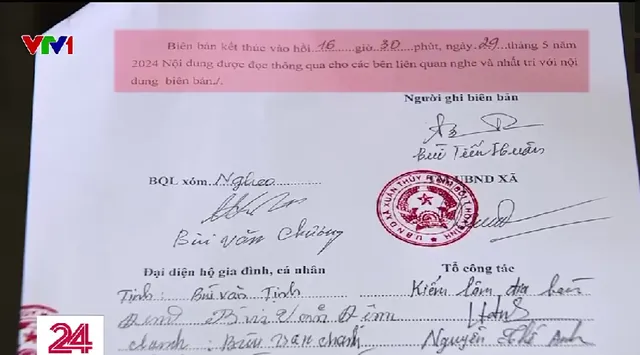 VTV1
Biên bản kết thúc vào hồi 16 giờ 30 phút, ngày 29 tháng 5 năm
2024 Nội dung được đọc thông qua cho các bên liên quan nghe và nhất trí với nội
dung biên bản./.
Người ghi biên bản
Bùi Tiến Huấn
BQL xóm Nghẹo
UBND XÃ
Bùi Văn Chương
Đại diện hộ gia đình, cá nhân
Tổ công tác
Tịnh: Bùi Văn Tịnh
Kiểm lâm địa bàn
Bùi Văn
chanh: Bùi Văn chánh
Nguyễn Thế Anh
24